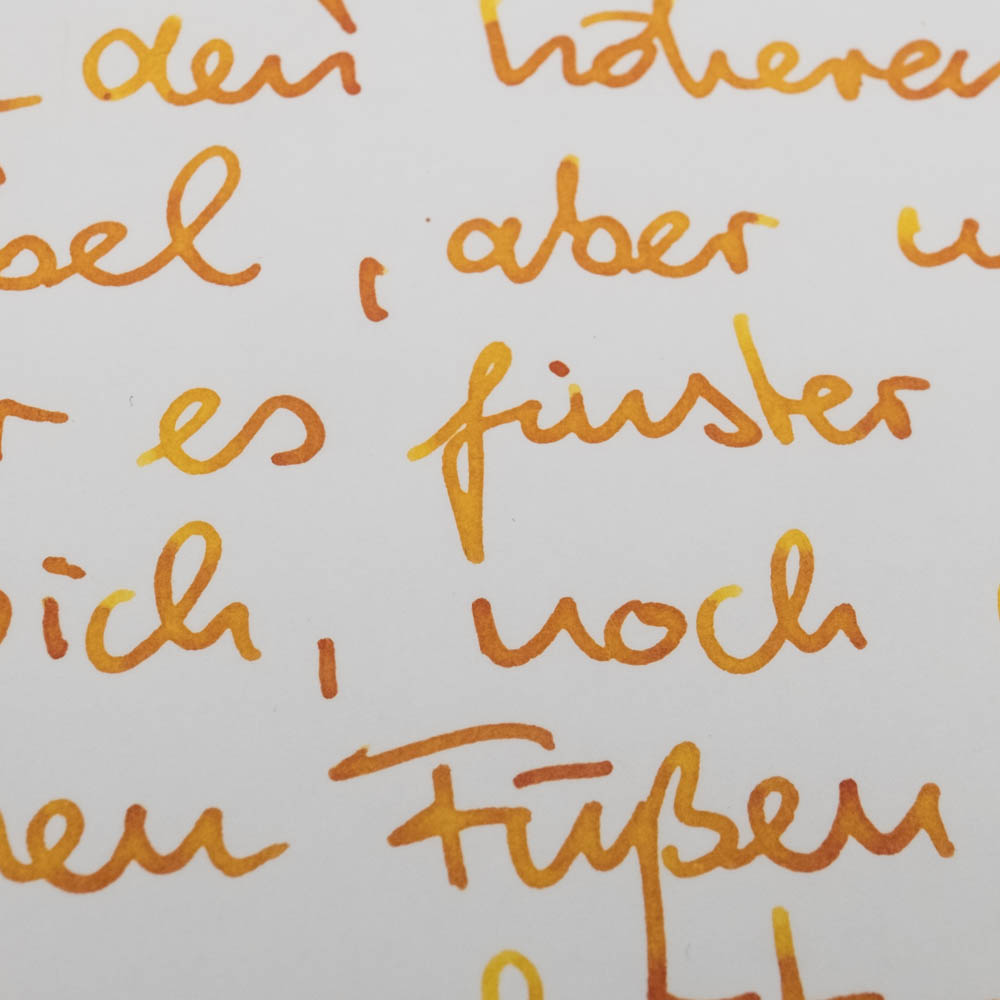 den höheren
, aber
es finster
ich, noch
Füßen